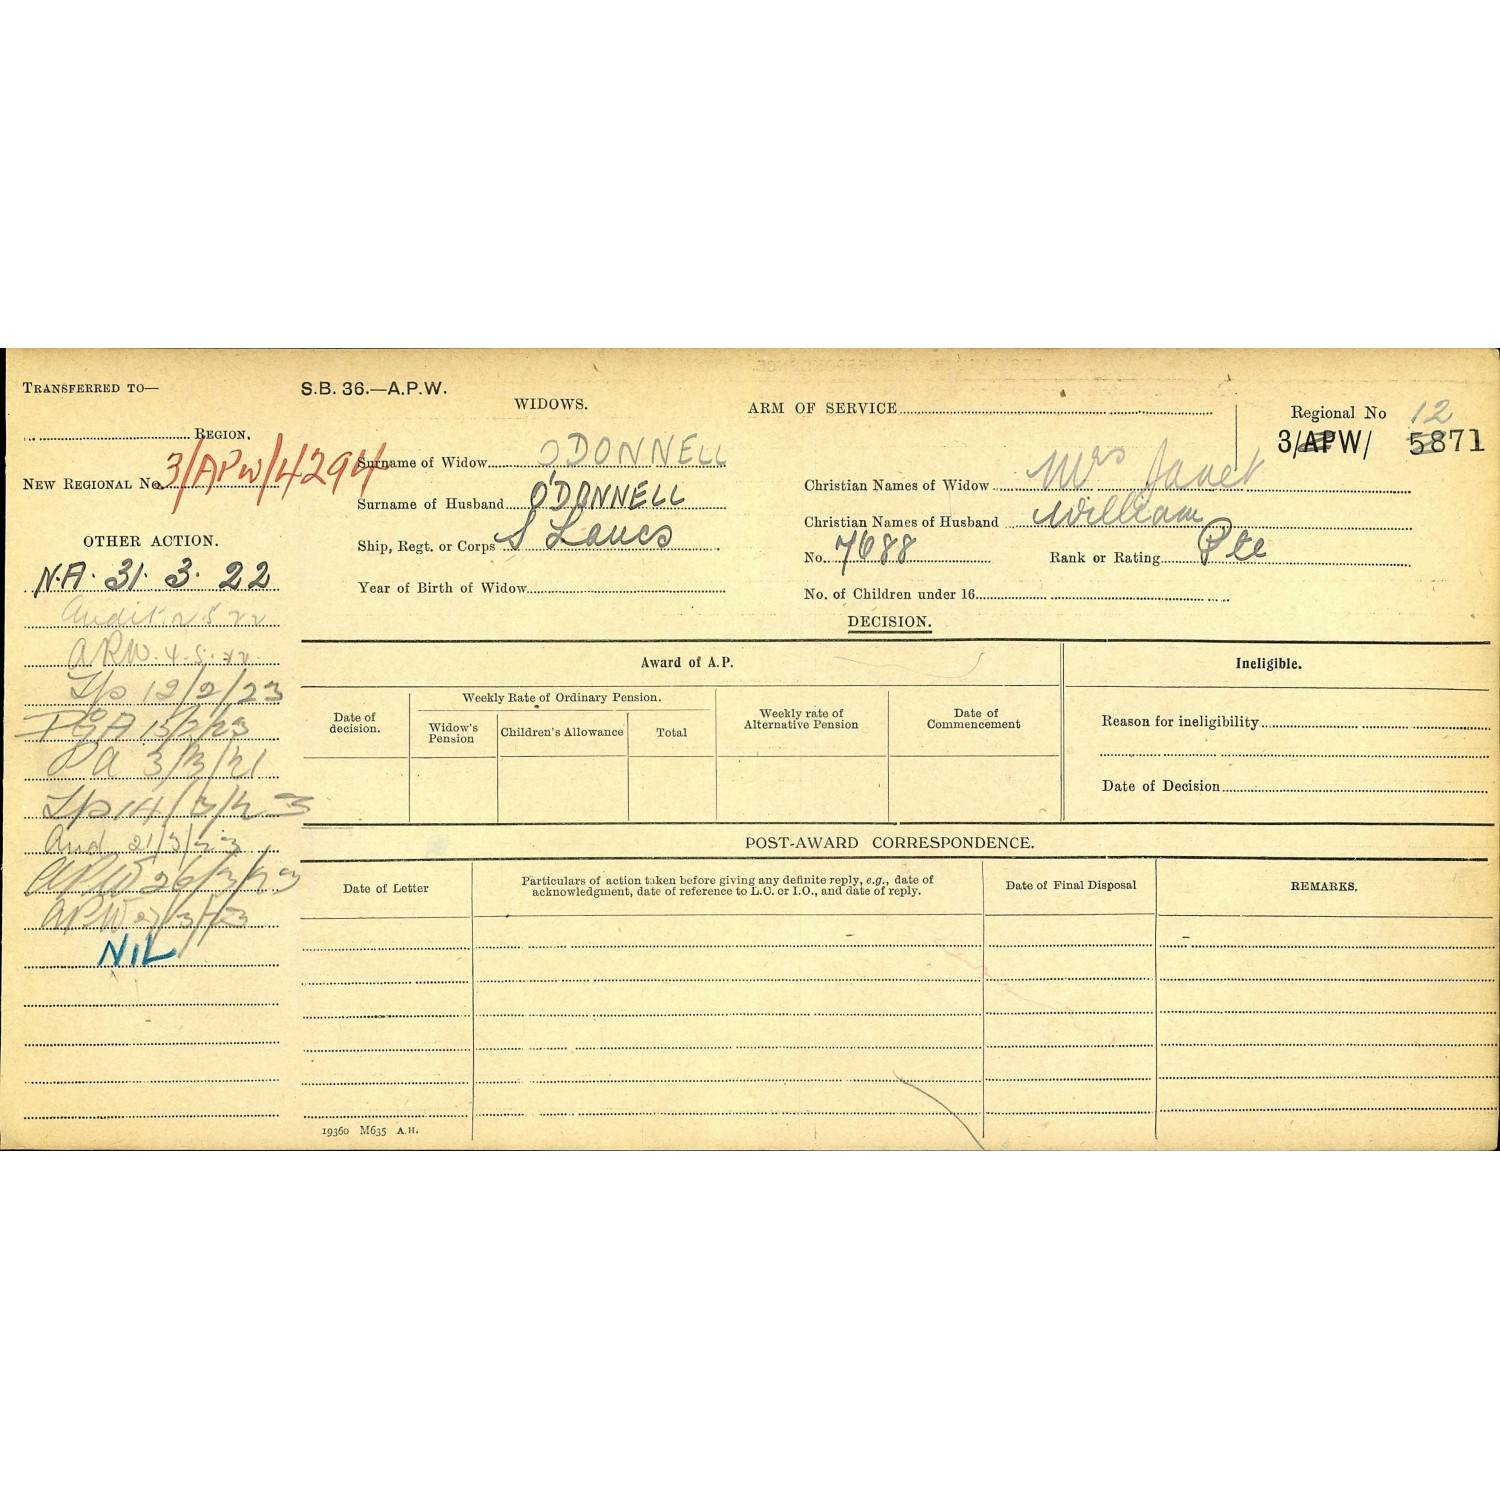 TRANSFERRED TO—
REGION.
NEW REGIONAL No. 3/APW/4294
OTHER ACTION.
N.A. 31. 3. 22
Audit 2 5 22
APW. 4. 5. 22.
12/2/23
PGA 15/2/23
PA 3/3/21
14/3/23
Aud 21/3/23
APW 26/3/23
APW 27/3/23
NIL
S.B. 36.—A.P.W.
WIDOWS.
ARM OF SERVICE
Regional No 12
3/APW/ 5871
Surname of Widow O'DONNELL
Christian Names of Widow Mrs Janet
Surname of Husband O'DONNELL
Christian Names of Husband William
Ship, Regt. or Corps S Lancs
No. 7688 Rank or Rating Pte
Year of Birth of Widow
No. of Children under 16
DECISION.
Award of A.P.
Ineligible.
Date of decision.
Weekly Rate of Ordinary Pension.
Widow's Pension
Children's Allowance
Total
Weekly rate of Alternative Pension
Date of Commencement
Reason for ineligibility
Date of Decision
POST-AWARD CORRESPONDENCE.
Date of Letter
Particulars of action taken before giving any definite reply, e.g., date of
acknowledgment, date of reference to L.C. or I.O., and date of reply.
Date of Final Disposal
REMARKS.
19360 M635 A.H.